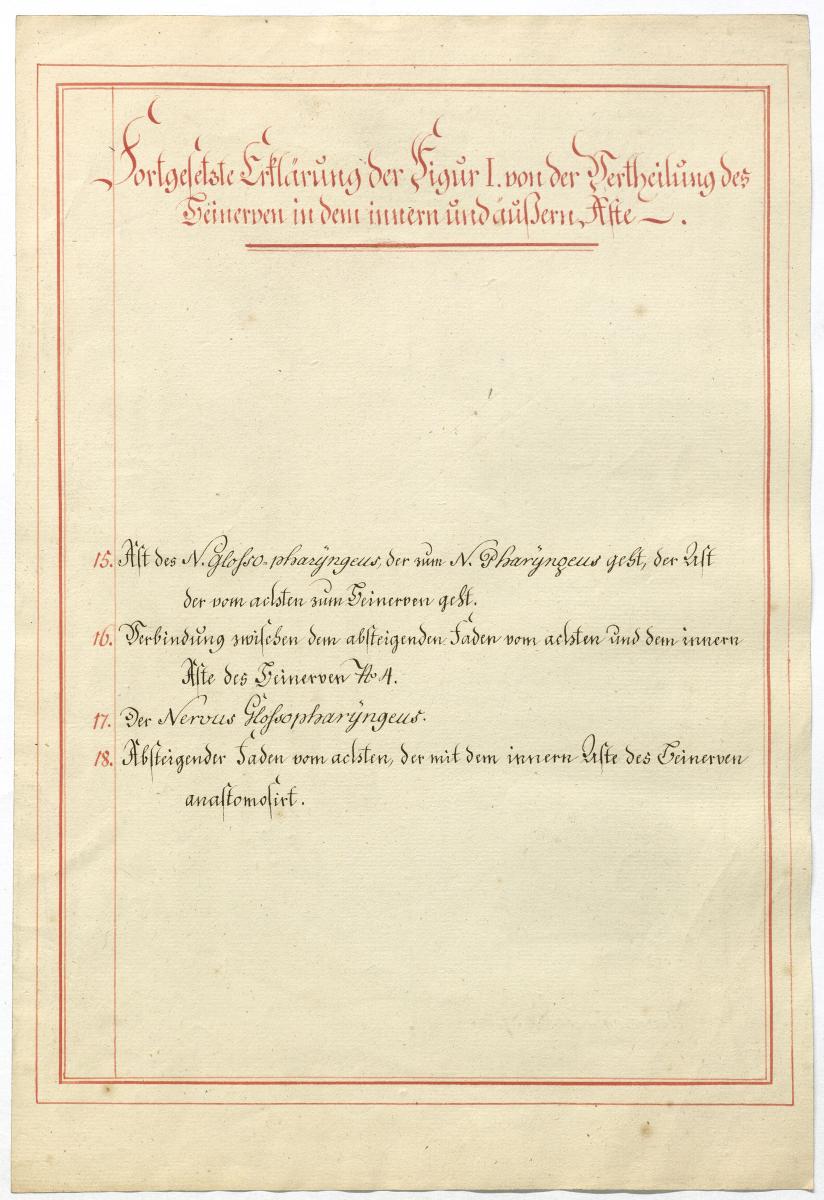 Fortgesetzte Erklärung der Figur I. von der Vertheilung des
Beinerven in dem innern und äußern Äste —.
15. Ast des N. Glosso-pharÿngeus, der zum N. Pharÿngeus geht, der Ast
der vom achten zum Beinerven geht.
16. Verbindung zwischen dem absteigenden Faden vom achten und dem innern
Äste des Beinerven No 4.
17. Der Nervus Glossopharÿngeus.
18. Absteigender Faden vom achten, der mit dem innern Aste des Beinerven
anastomosirt.